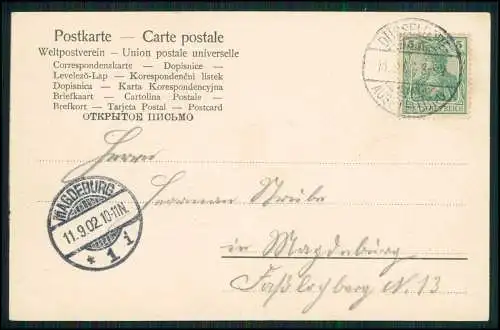 Postkarte — Carte postale
Weltpostverein - Union postale universelle
Correspondenzkarte — Dopisnice -
Levelező-Lap — Korespondenčni listek
Dopisnica — Karta Korespondencyjna
Briefkaart — Cartolina Postale —
Brefkort — Tarjeta Postal — Postcard
ОТКРЫТОЕ ПИСЬМО
DÜSSELDORF
AUSSTELLUNG
REICH
Herrn
Hermann Strube
in Magdeburg
Faßlochsberg N. 13
MAGDEBURG
11.9.02.10-11N.
* 1 i